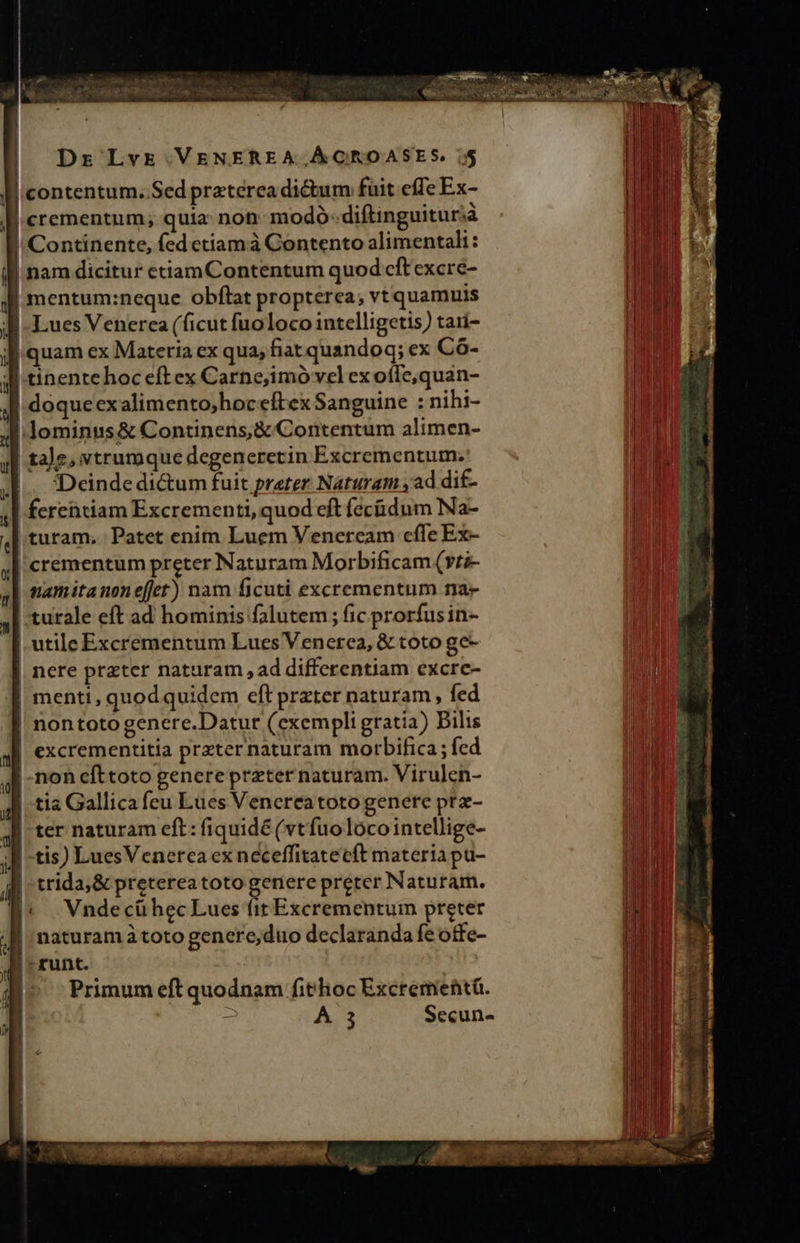 De Lve Venerea Acroases. 5
contentum. Sed præterea dictum fuit eſſe Ex-
crementum, quia non modò diſtinguitur à
Continente, ſed etiam à Contento alimentali:
nam dicitur etiam Contentum quod eſt excre-
mentum: neque obſtat propterea, vt quamuis
Lues Venerea (ſicut ſuo loco intelligetis) tan-
quam ex Materia ex qua, fiat quandoq; ex Cō-
tinente hoc eſt ex Carne, imò vel ex oſſe, quan-
doque ex alimento, hoc eſt ex Sanguine : nihi-
lominus & Continens, & Contentum alimen-
tale, vtrumque degeneret in Excrementum.
Deinde dictum fuit præter Naturam, ad dif-
ferentiam Excrementi, quod eſt ſecūdum Na-
turam. Patet enim Luem Veneream eſſe Ex-
crementum pręter Naturam Morbificam (vti-
nam ita non eſſet) nam ſicuti excrementum na-
turale eſt ad hominis ſalutem; ſic prorſus in-
utile Excrementum Lues Venerea, & toto ge-
nere præter naturam, ad differentiam excre-
menti, quod quidem eſt præter naturam, ſed
non toto genere. Datur (exempli gratia) Bilis
excrementitia præter naturam morbifica; ſed
non eſt toto genere præter naturam. Virulen-
tia Gallica ſeu Lues Venerea toto genere præ-
ter naturam eſt: ſiquidē (vt ſuo loco intellige-
tis) Lues Venerea ex neceſſitate eſt materia pu-
trida, & pręterea toto genere pręter Naturam.
Vnde cū hęc Lues ſit Excrementum pręter
naturam à toto genere, duo declaranda ſe offe-
runt.
Primum eſt quodnam ſit hoc Excrementū.
A 3 Secun-